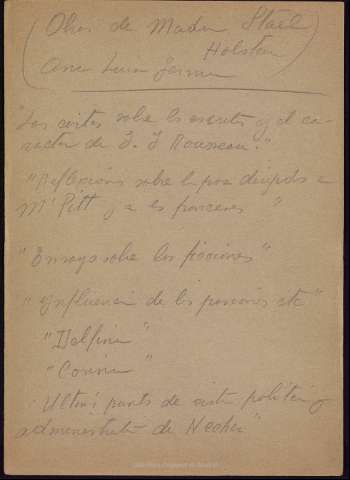 (Obras de Madam Stäel
Holstein
Ana Luisa Germa
"Las cartas sobre los escritos y el ca-
racter de J. J Rousseau."
"Reflexions sobre la paz dirigidas a
Mr Pitt y a los franceses"
"Ensayo sobre las ficciones"
"Ynfluencia de las pasiones etc"
"Delfina"
"Corina"
"Ultim' parts de
politica y
administrat de Necker"